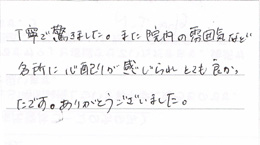 丁寧で驚きました。また院内の雰囲気など
各所に心配りが感じられとても良かっ
たです。ありがとうございました。